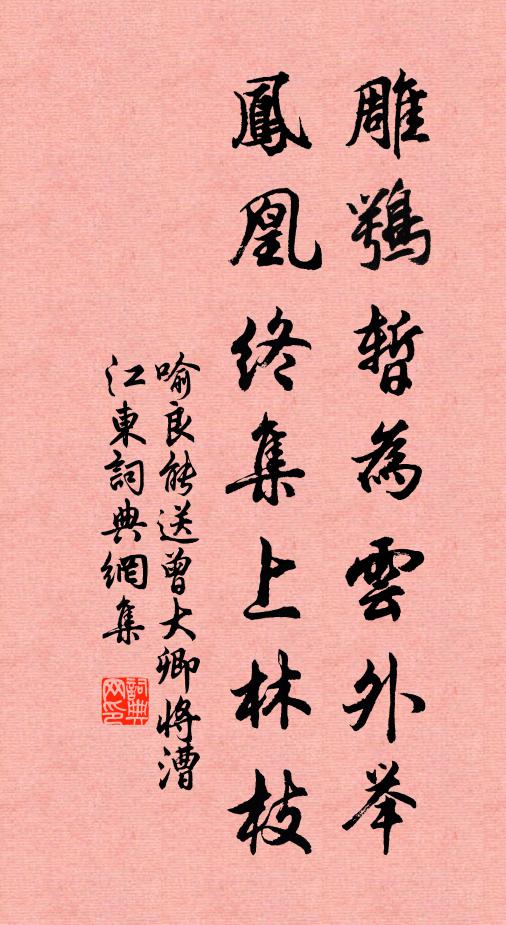 雕鶚暫為雲外举
鳳凰終集上林枝
喻良能送曾大卿将漕
江東詞典網集
詞典
网印